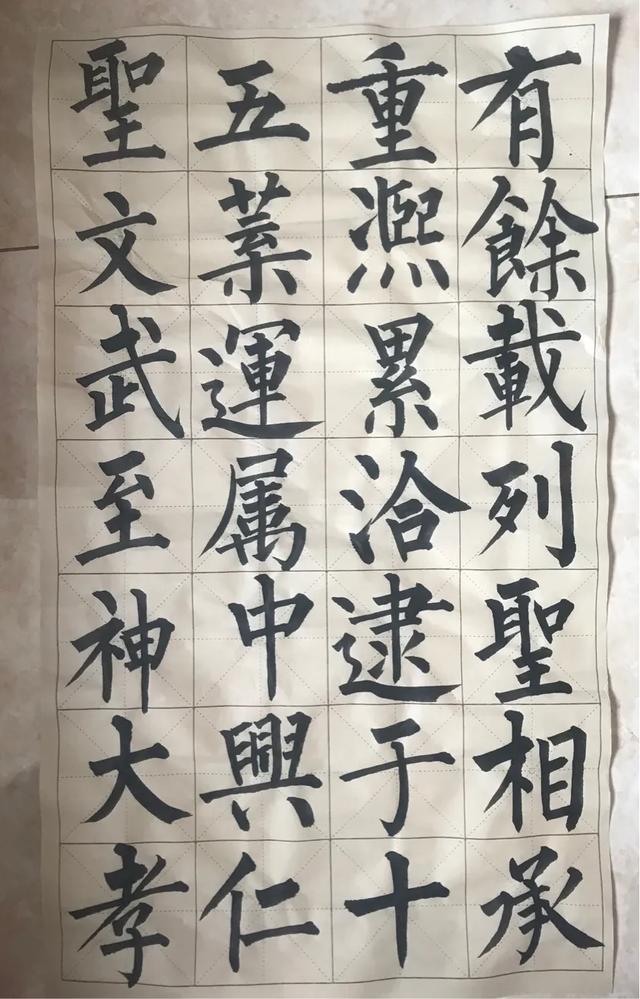 有餘載列聖相承
重熈累洽逮于十
五葉運属中興仁
聖文武至神大孝